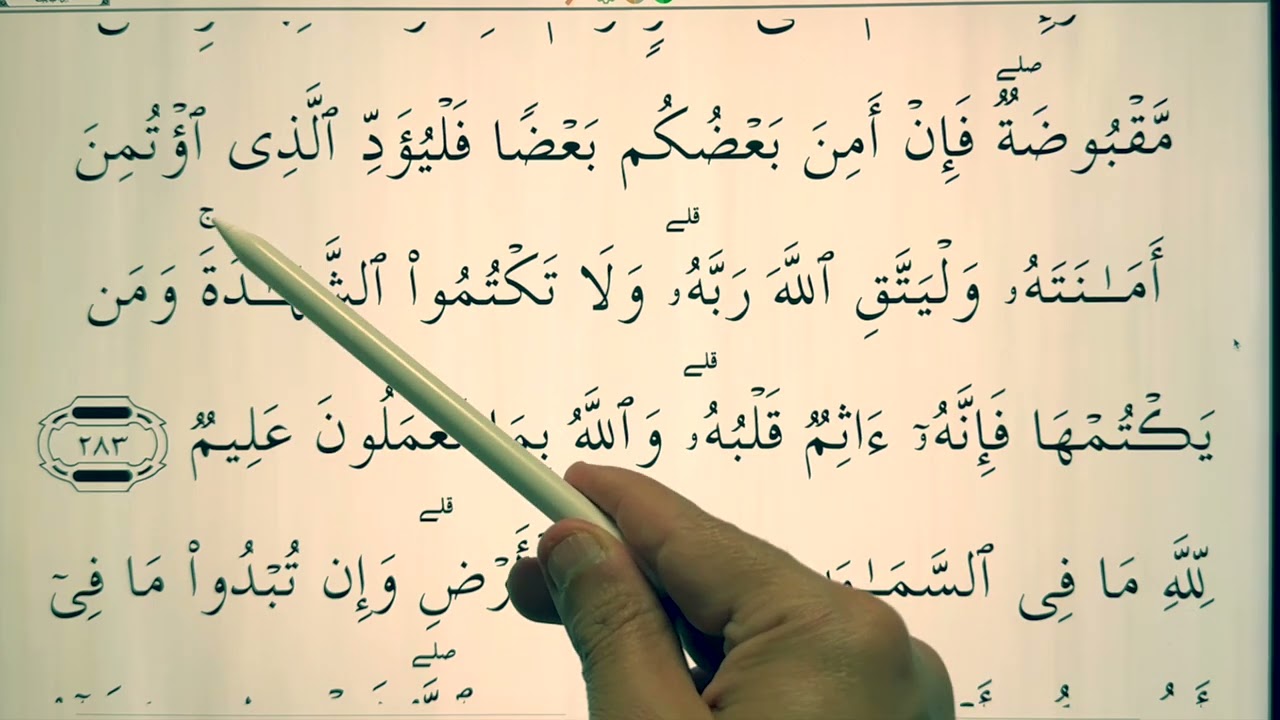 مَّقۡبُوضَةٌۖ فَإِنۡ أَمِنَ بَعۡضُكُم بَعۡضًا فَلۡيُؤَدِّ ٱلَّذِى ٱؤۡتُمِنَ
أَمَٰنَتَهُۥ وَلۡيَتَّقِ ٱللَّهَ رَبَّهُۥۗ وَلَا تَكۡتُمُوا۟ ٱلشَّهَٰدَةَۚ وَمَن
يَكۡتُمۡهَا فَإِنَّهُۥٓ ءَاثِمٌ قَلۡبُهُۥۗ وَٱللَّهُ بِمَا تَعۡمَلُونَ عَلِيمٌ ٢٨٣
لِلَّهِ مَا فِى ٱلسَّمَٰوَ ٱلۡأَرۡضِۗ وَإِن تُبۡدُوا۟ مَا فِىٓ